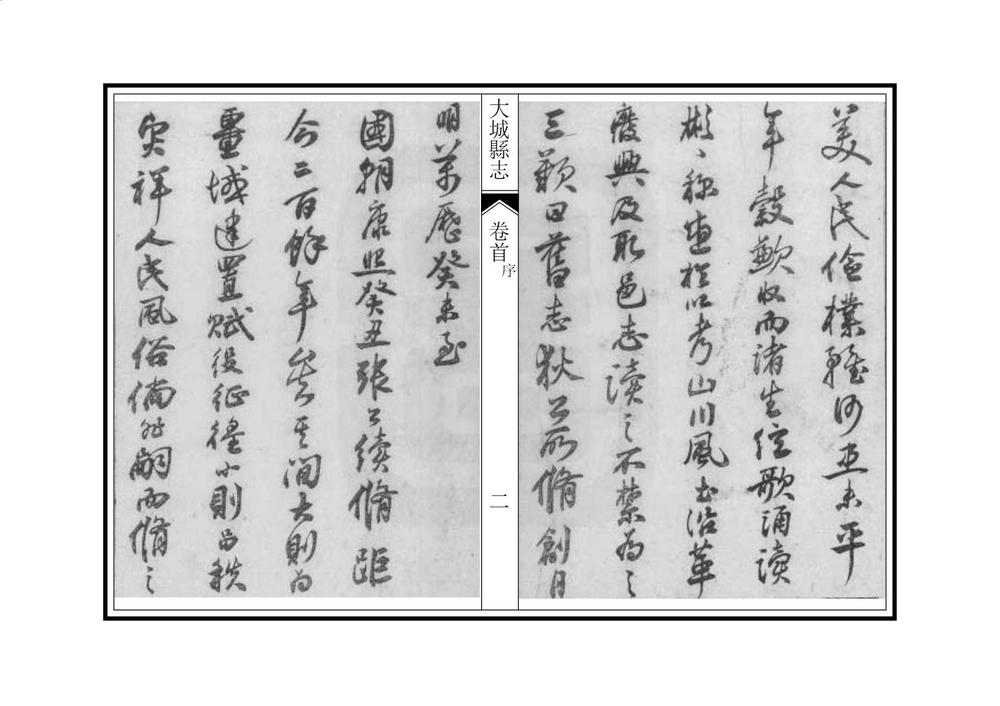 美人民儉樸雖河未平
年穀歉收而諸生絃歌誦讀
彬彬稱盛於以考山川風土沿革
廢興及取邑志讀之不禁為之
三歎曰舊志狄公所脩創自
大城縣志 卷首 序 二
明萬歷癸未至
國朝康熙癸丑張公續脩距
今二百餘年矣其間大則為
畺域建置賦役征徭小則品秩
灾祥人民風俗倘非嗣而脩之